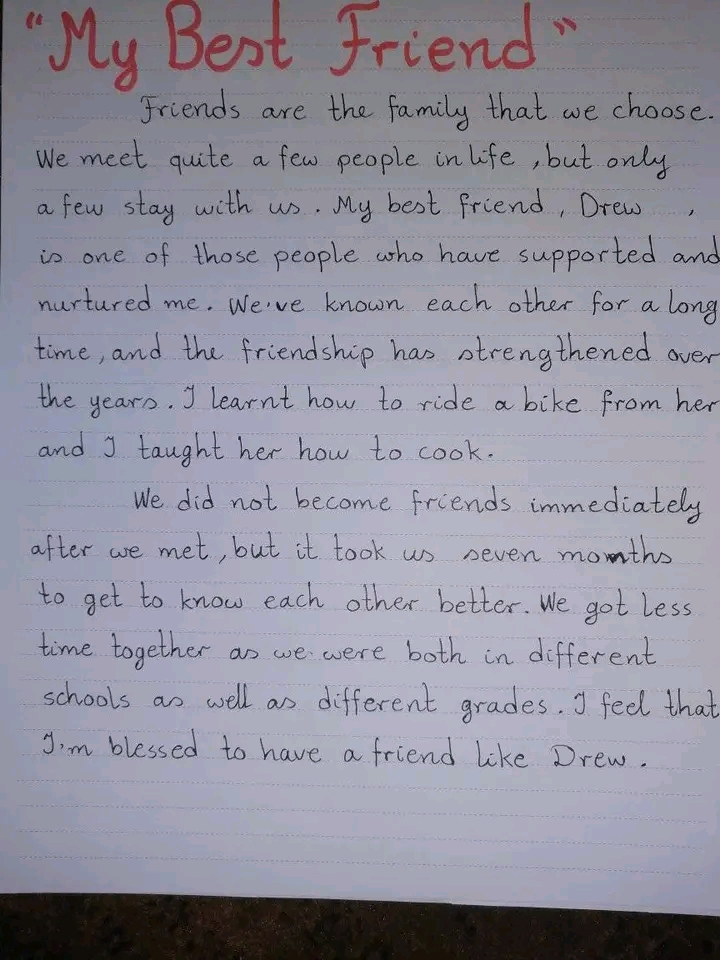 "My Best Friend"
Friends are the family that we choose.
We meet quite a few people in life , but only
a few stay with us . My best friend , Drew ,
is one of those people who have supported and
nurtured me. We've known each other for a long
time, and the friendship has strengthened over
the years. I learnt how to ride a bike from her
and I taught her how to cook.
We did not become friends immediately
after we met, but it took us seven months
to get to know each other better. We got less
time together as we were both in different
schools as well as different grades. I feel that
I'm blessed to have a friend like Drew.